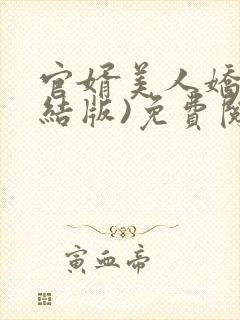 官婿美人嬌
結版)免費閱
寅血帝